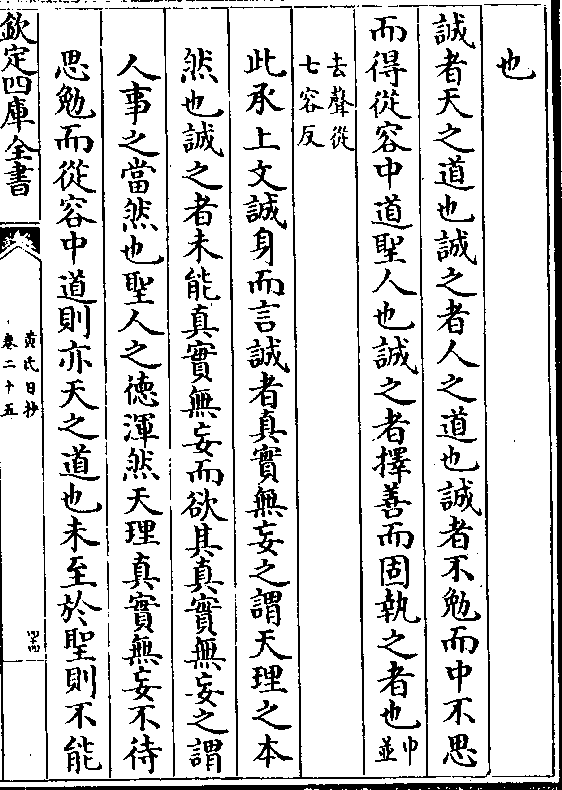 也
誠者天之道也誠之者人之道也誠者不勉而中不思
而得從容中道聖人也誠之者擇善而固執之者也中並
去聲從
七容反
此承上文誠身而言誠者真實無妄之謂天理之本
然也誠之者未能真實無妄而欲其真實無妄之謂
人事之當然也聖人之德渾然天理真實無妄不待
思勉而從容中道則亦天之道也未至於聖則不能
欽定四庫全書
黃氏日抄
卷二十五